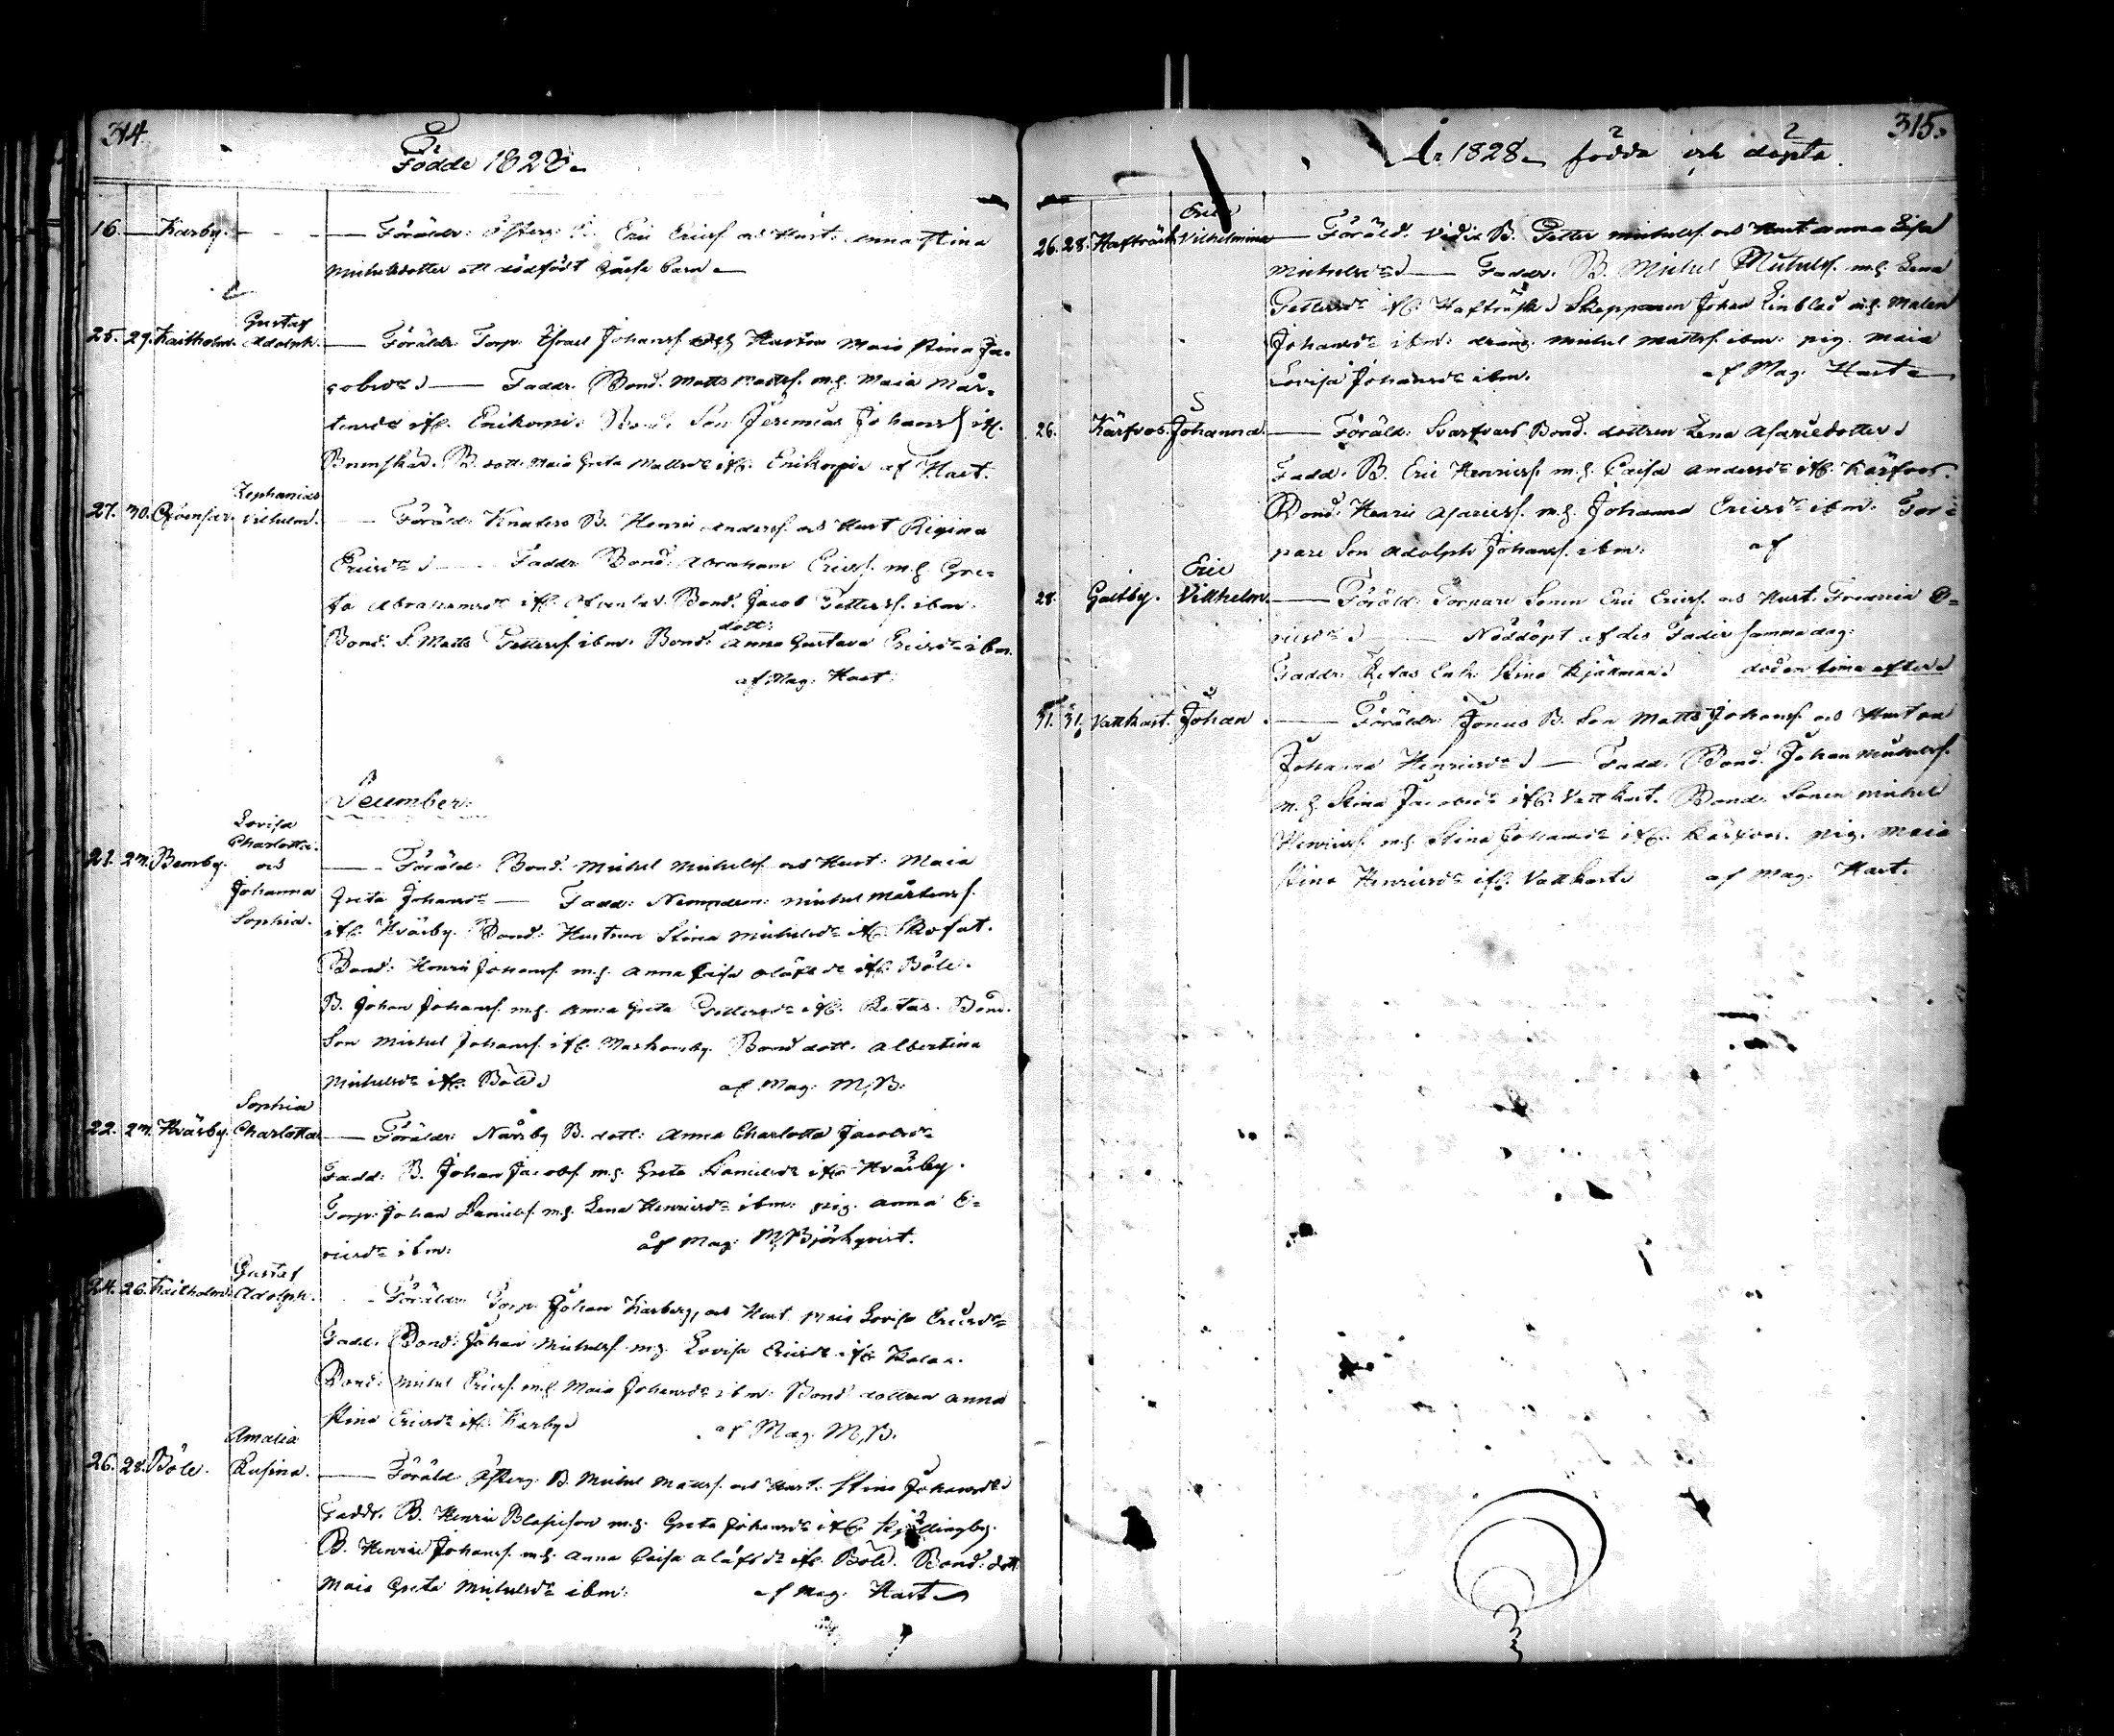 314.
Födde 1828.
16. — Karby. — — — Föräldr: Österg: B. Eric Ericss. och Hust: Anna Stina
Michelsdotter ett dödfödt Gåsse barn —
Gustaf
25. 29. Kaitholm. Adolph. — Föräldr. Torp. Israel Johanss. och Hustrun Maia Stina Ja=
cobsdr — Faddr. Bond. Matts Mattss. m. h. Maia Mår=
tensdr ifr. Enikomi. Bond. Son Jeremias Johanss ifr.
B. dott. Maia Greta Mattsdr ifr. af Hast.
Zephanias
27. 30. Öfvensar. Vilhelm. — Föräld: Knuters B. Henric Anderss. och Hust Regina
Ericsdr — Faddr Bond. Abraham Ericss. m. h. Gre=
ta Abrahamsdr ifr. Öfvensar. Bond. Jacob Petterss. ibm.
dott:
Bond. S. Matts Petterss. ibm. Bond. Anna Gustava Ericsdr ibm.
af Mag. Hast.
December.
Lovisa
Charlotta.
21. 27. Bemby. och — Föräld: Bond. Michel Michelss. och Hust: Maia
Johanna Greta Johansdr — Fadd: Nemndem: Michel Mårtenss.
Sophia. ifr. Kvärby. Bond: Hustrun Stina Michelsdr ifr. Rofat.
Bond: Henric Johanss. m. h. Anna Caisa Olofsdr ifr. Böle.
B. Johan Johanss. m. h. Anna Greta Pettersdr ifr. Retas. Bond.
Son Michel Johanss. ifr. Maskomby. Bond dott. Albertina
Michelsdr ifr. Böle. af Mag: M, B.
Sophia
22. 27. Kvärby. Charlotta — Föräldr: Närsby B. dott: Anna Charlotta Jacobsdr
Fadd: B. Johan Jacobss. m. h. Greta Danielsdr ifr Kvärby.
Torp: Johan Danielss. m. h. Lena Henricsdr ibm: pig. Anna E=
ricsdr ibm: af Mag: M, Björkqvist.
Gustaf
24. 26. Kaitholm. Adolph. — Föräldr: Torp. Johan Karberg, och Hust Maia Lovisa Ericsdr
Fadd. Bond: Johan Michelss. m. h. Lovisa Ericsdr ifr
Bond: Michel Ericss. m. h. Maia Johansdr ibm: Bond dottren Anna
Stina Ericsdr ifr. Karby. af Mag. M, B.
Amalia
26. 28. Böle. Rusina. — Föräld Österg. B. Michel Mattss. och Hust. Stina Johansdr
Faddr. B. Henric Blasieson m. h. Greta Johansdr ifr. Kjöllingby.
B. Henric Johanss. m. h. Anna Caisa Olofsdr ifr. Böle. Bond: dott
Maia Greta Michelsdr ibm: af Mag. Hast
315.
År 1828 födda och döpta.
Erica
26. 28. Hafträsk. Vilhelmina — Föräld. Vidix B. Petter Michelss. och Hust Anna Lisa
Michelsdr — Faddr. B. Michel Michelss. m. h. Lena
Pettersdr ifr. Hafträsk Skepparen Johan Linblad m. h. Malen
Johansdr ibm: dräng. Michel Mattss. ibm: pig. Maia
Lovisa Johansdr ibm. af Mag. Hast
26. Kärfvos. Johanna. — Föräld: Svarfvars Bond. dottren Lena Asariedotter
Fadd. B. Eric Henricss. m. h. Caisa Andersdr ifr. Kärfvos.
Bond: Henric Asariess. m. h. Johanna Ericsdr ibm. Tor=
pare Son Adolph Johanss. ibm: af
Eric
28. Galtby. Villhelm. — Föräld: Torpare Sonen Eric Ericss. och Hust. Fredrica E=
ricsdr — Nöddöpt af des Fader samma dag:
Faddr: Retas Enk. Stina Kjäkman. dod en tima efter
31. 31. Vattkast. Johan. — Föräldr: Jonus B. Son Matts Johanss. och Hustru
Johanna Henricsdr — Fadd. Bond. Johan Michelss.
m. h. Stina Jacobsdr ifr. Vattkast. Bond. Sonen Michel
Henricss. m. h. Stina Johansdr ifr. Kärfvos. pig. Maia
Stina Henricsdr ifr. Vattkast. af Mag. Hast.